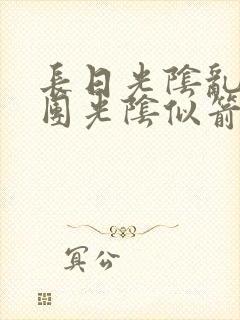 長日光陰亂
團光陰似箭
冥公